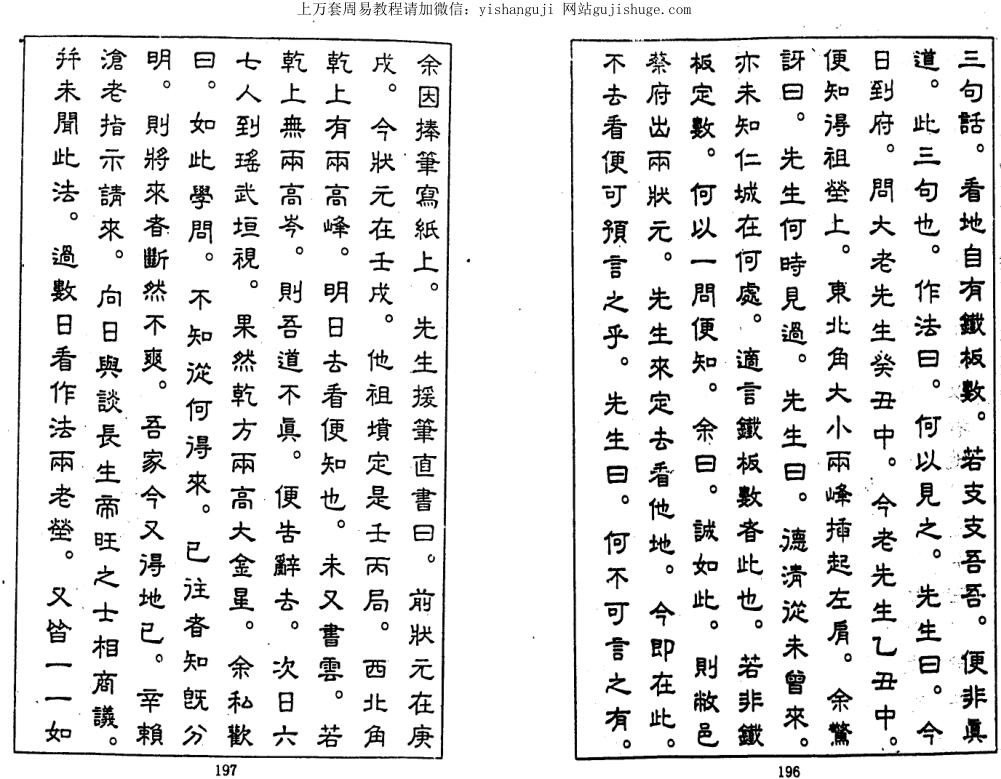 上万套周易教程请加微信：yishanguji 网站gujishuge.com
三句話。看地自有鐵板數。若支支吾吾。便非眞
道。此三句也。作法曰。何以見之。先生曰。今
日到府。問大老先生癸丑中。今老先生乙丑中。
便知得祖塋上。東北角大小兩峰揷起左肩。余驚
訝曰。先生何時見過。先生曰。德清從未曾來。
亦未知仁城在何處。適言鐵板數者此也。若非鐵
板定數。何以一問便知。余曰。誠如此。則敝邑
蔡府出兩狀元。先生來定去看他地。今即在此。
不去看便可預言之乎。先生曰。何不可言之有。
196
余因捧筆寫紙上。先生援筆直書曰。前狀元在庚
戌。今狀元在壬戌。他祖墳定是壬丙局。西北角
乾上有兩高峰。明日去看便知也。未又書雲。若
乾上無兩高岑。則吾道不眞。便告辭去。次日六
七人到瑤武垣視。果然乾方兩高大金星。余私歡
曰。如此學問。不知從何得來。已往者知既分
明。則將來者斷然不爽。吾家今又得地已。幸賴
滄老指示請來。向日與談長生帝旺之士相商議。
幷未聞此法。過數日看作法兩老塋。又皆一一如
197